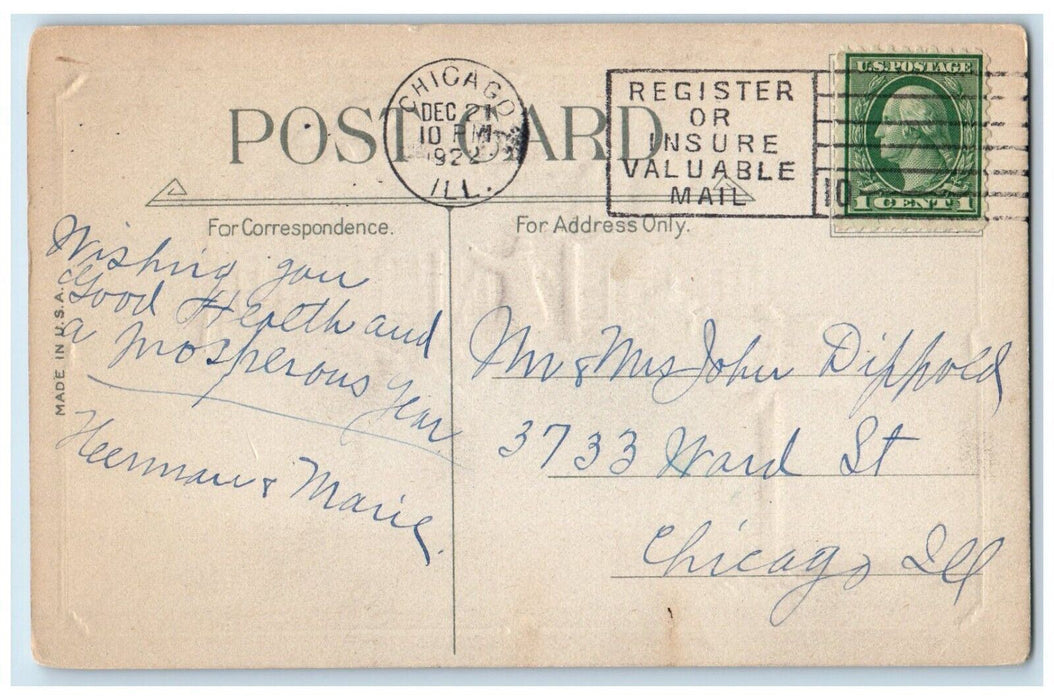 POST CARD
CHICAGO
DEC 21
10 PM
1922
ILL.
REGISTER
OR
INSURE
VALUABLE
MAIL
10
U.S.POSTAGE
1 CENT 1
For Correspondence.
For Address Only.
MADE IN U.S.A.
Wishing you
Good Health and
a Prosperous Year
Herman & Marie.
Mr & Mrs John Dippold
3733 Ward St
Chicago Ill